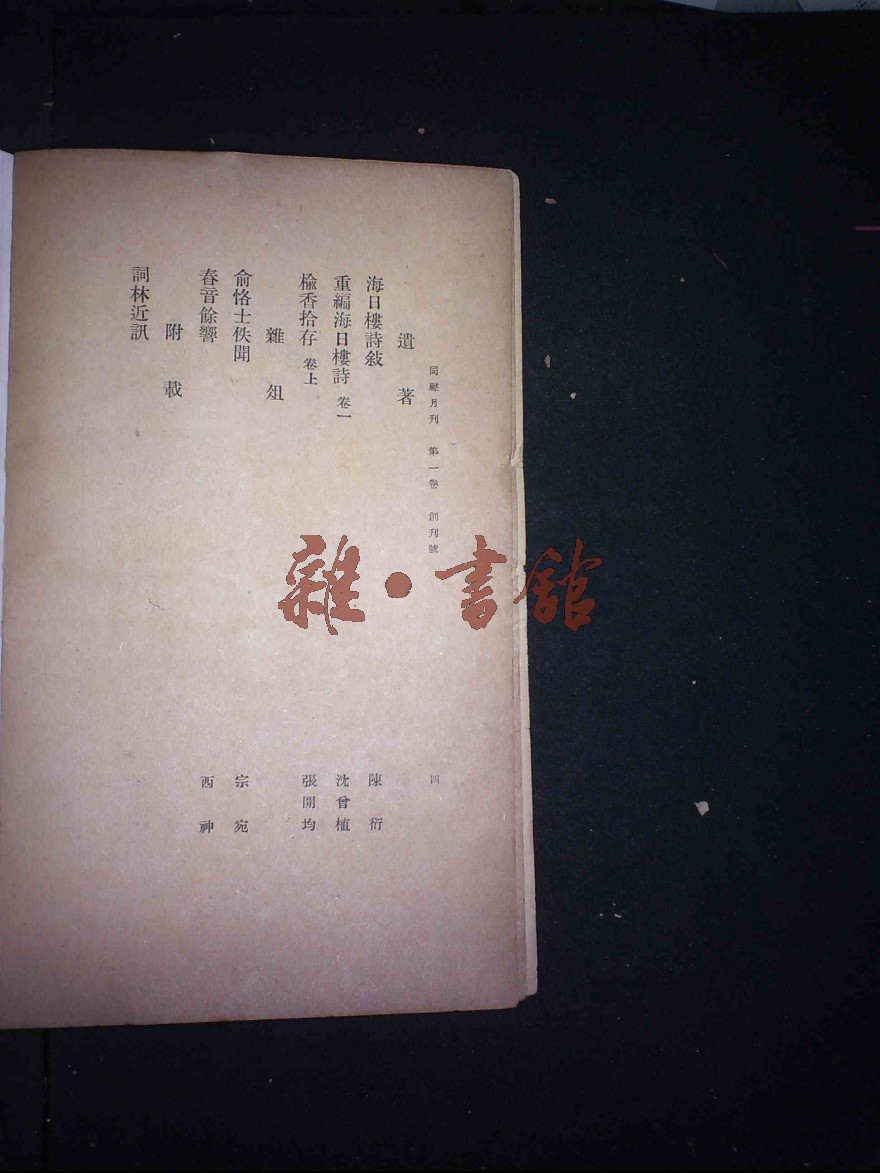 同聲月刊 第一卷 創刊號 四
遺著
海日樓詩敍 陳衍
重編海日樓詩 卷一 沈曾植
檢香拾存 卷上 張開均
雜俎
俞恪士佚聞 宗宛
春音餘響 西神
附載
詞林近訊
雜·書館